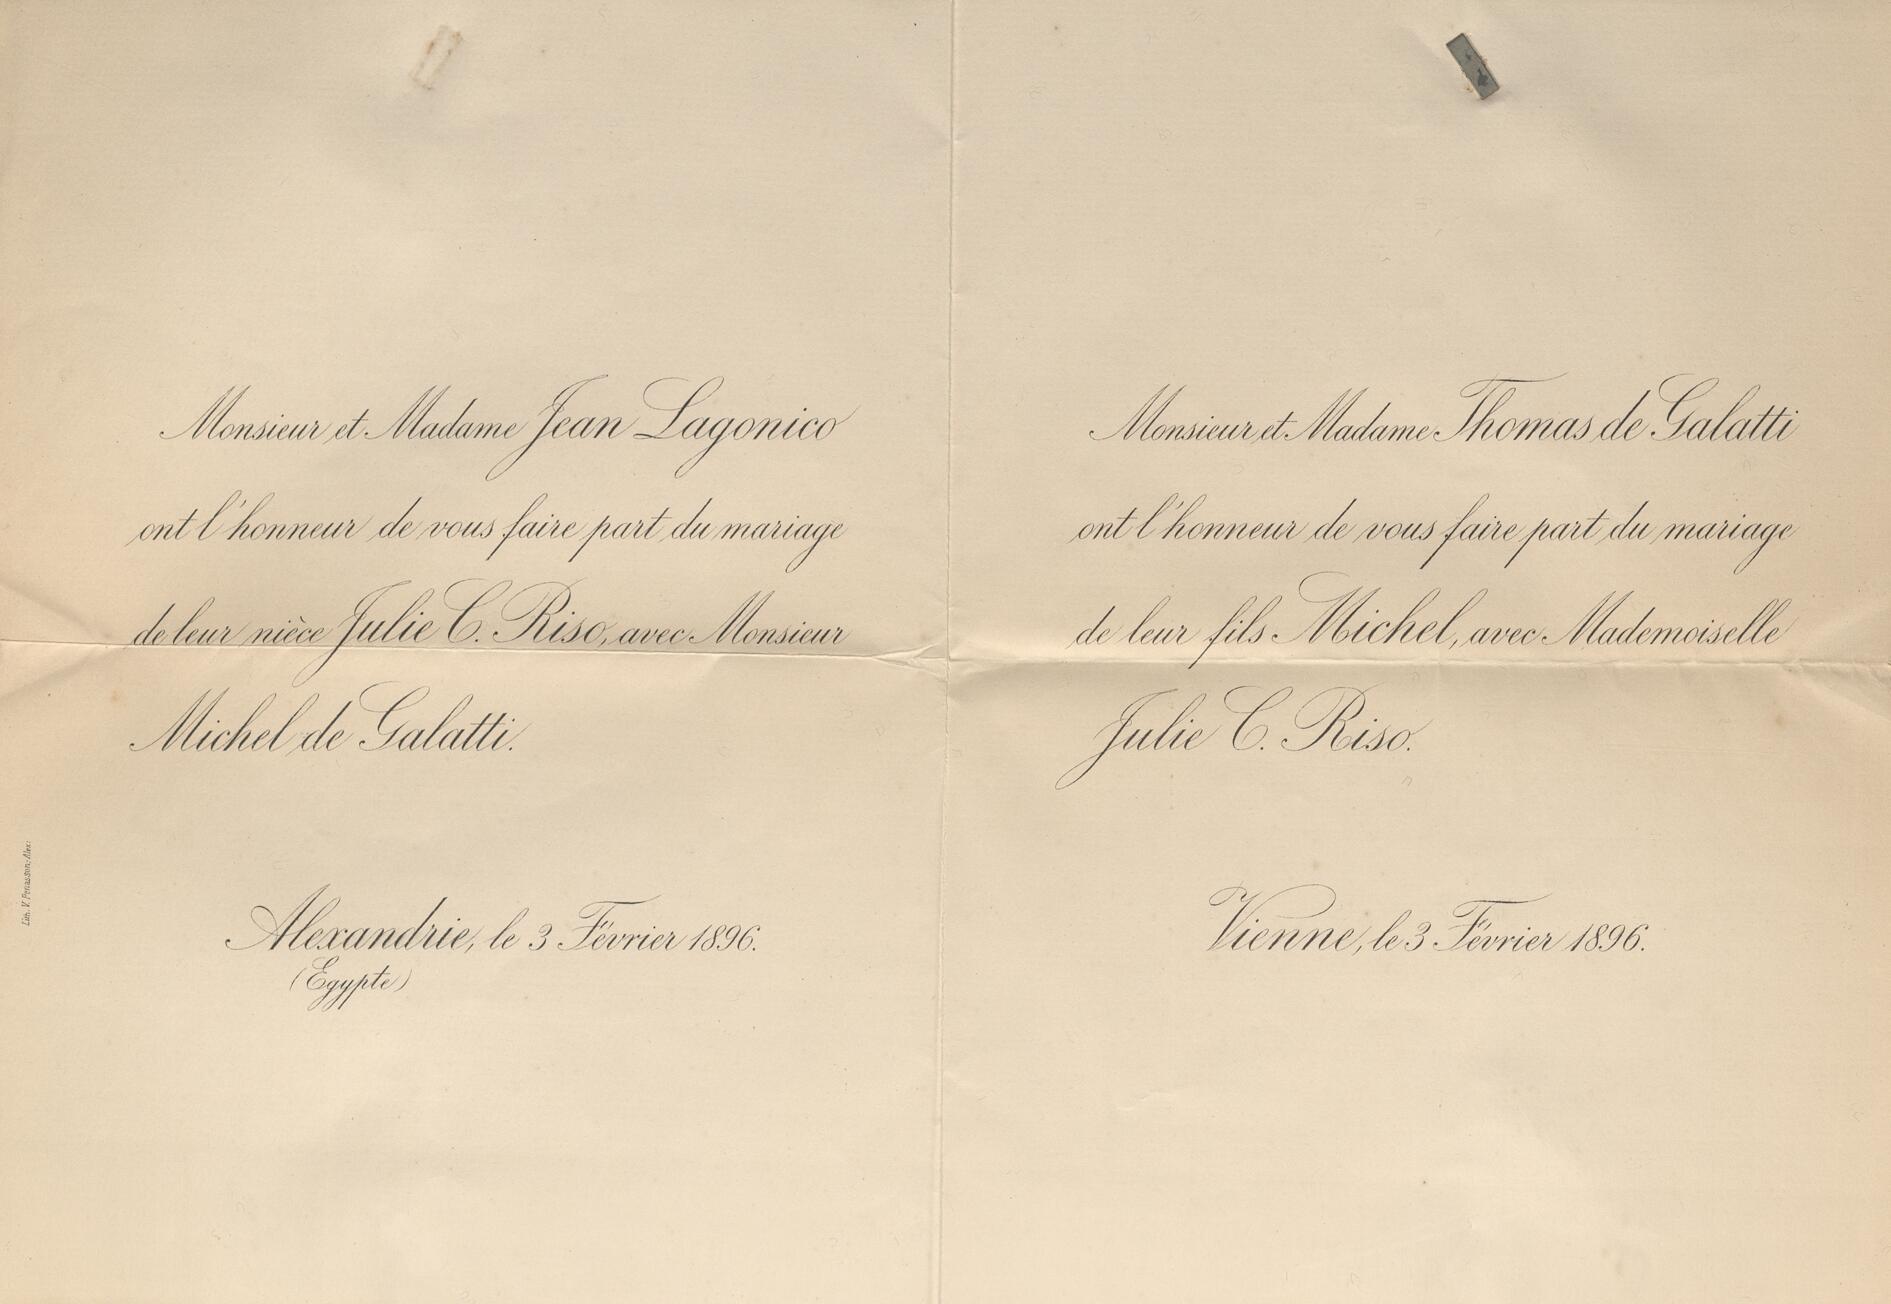 Monsieur et Madame Jean Lagonico
ont l'honneur de vous faire part du mariage
de leur nièce Julie C. Riso, avec Monsieur
Michel de Galatti.
Alexandrie, le 3 Février 1896.
(Egypte)
Lith. V. Penasson, Alex:
Monsieur et Madame Thomas de Galatti
ont l'honneur de vous faire part du mariage
de leur fils Michel, avec Mademoiselle
Julie C. Riso.
Vienne, le 3 Février 1896.